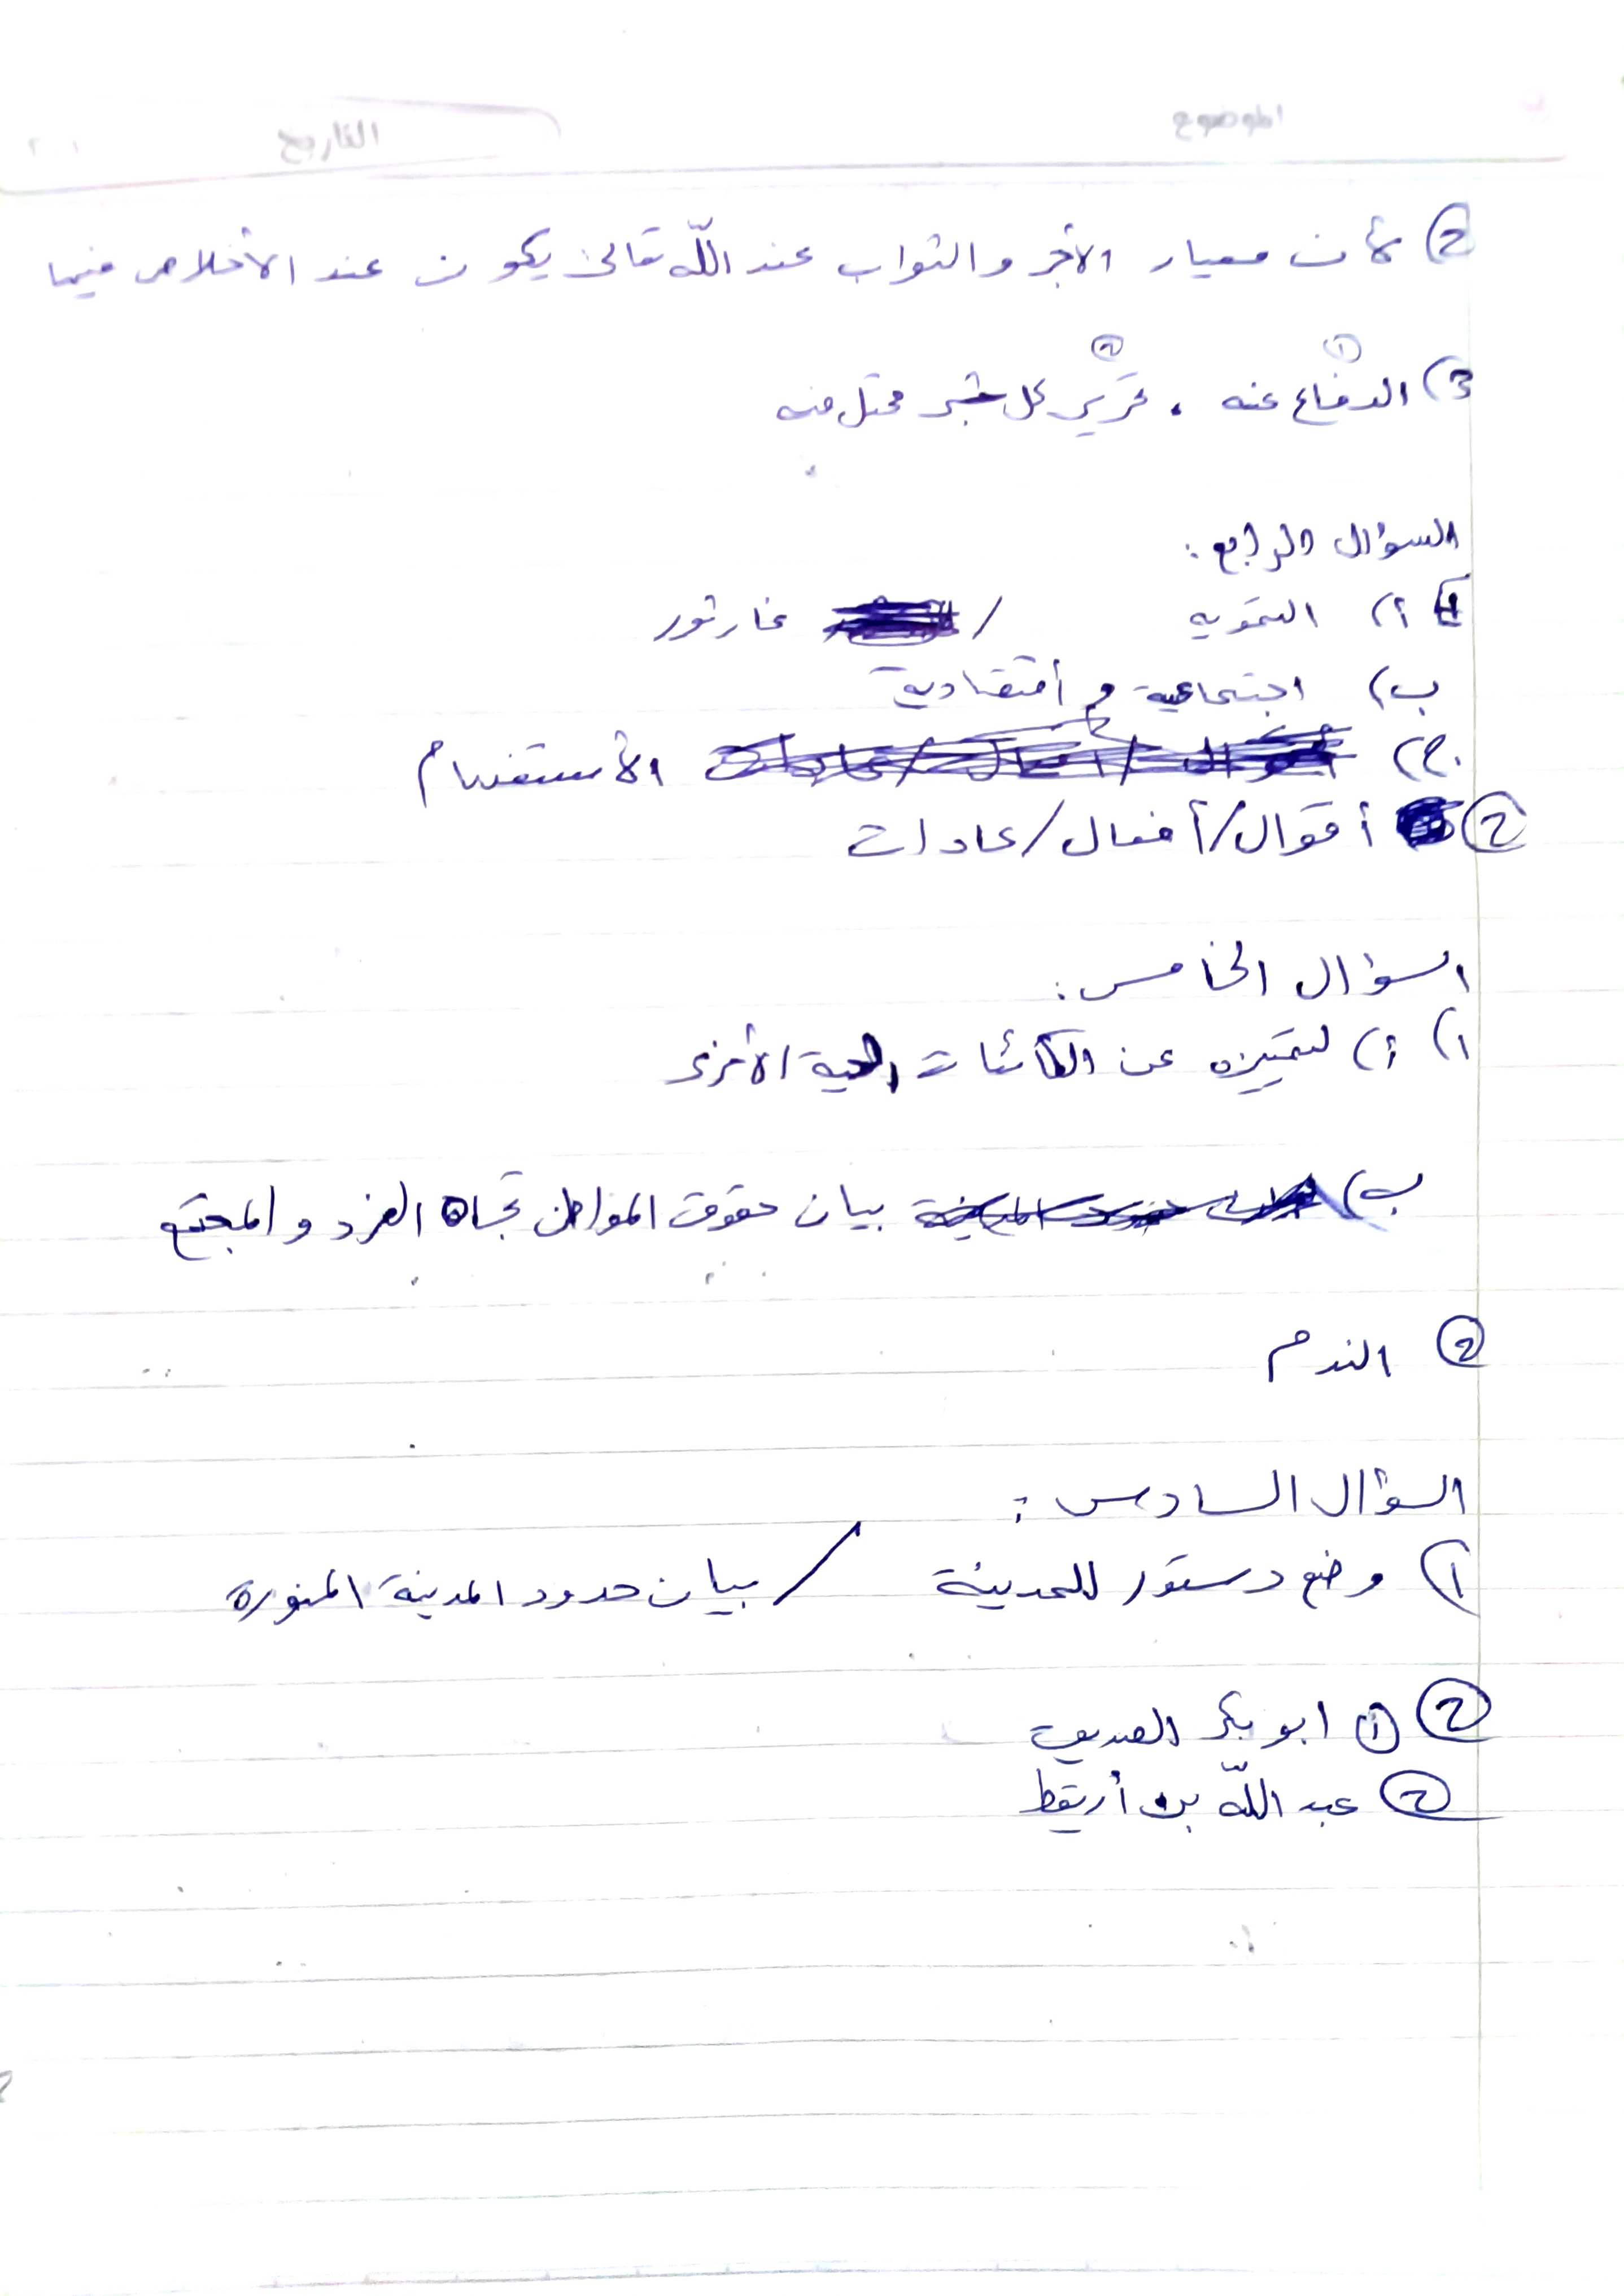 الموضوع التاريخ
② لأن معيار الأجر والثواب عند الله تعالى يكون عند الأخلاص فيها
① ②
3) الدفاع عنه . تحرير كل شبر محتل منه
السؤال الرابع :
1) أ) التمويه / غار ثور
ب) اجتماعية و أقتصادية
ج) الأستفهام
② أقوال / أفعال / عادات
السؤال الخامس :
١) أ) لتميزه عن الكائنات الحية الأخرى
ب) بيان حقوق المواطن تجاه الفرد والمجتمع
② الندم
السؤال السادس :
١) وضع دستور للمدينة / بيان حدود المدينة المنورة
② ① ابو بكر الصديق
② عبد الله بن أريقط